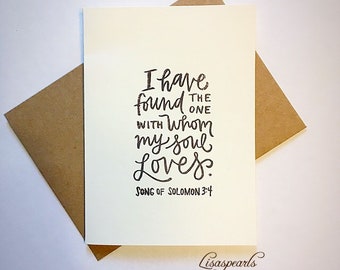 I have
found THE
ONE
WITH whom
my soul
Loves.
SONG OF SOLOMON 3:4
Lisaspearls